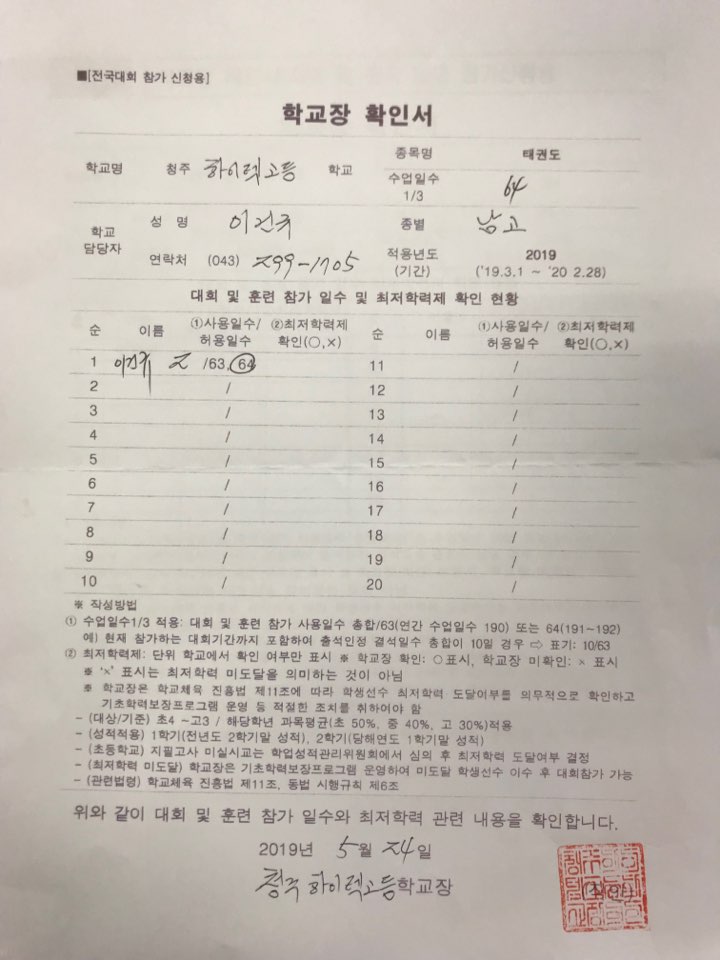 ■[전국대회 참가 신청용]
학교장 확인서
학교명 청주 하이텍고등 학교 종목명 태권도
수업일수 1/3 64
학교 담당자 성 명 종별 남고
연락처 (043) 299-1705 적용년도 (기간) 2019 ('19.3.1 ~ '20 2.28)
대회 및 훈련 참가 일수 및 최저학력제 확인 현황
순 이름 ①사용일수/허용일수 ②최저학력제 확인(○,×) 순 이름 ①사용일수/허용일수 ②최저학력제 확인(○,×)
1 2 /63, 64 11 /
2 / 12 /
3 / 13 /
4 / 14 /
5 / 15 /
6 / 16 /
7 / 17 /
8 / 18 /
9 / 19 /
10 / 20 /
※ 작성방법
① 수업일수1/3 적용: 대회 및 훈련 참가 사용일수 총합/63(연간 수업일수 190) 또는 64(191~192)
예) 현재 참가하는 대회기간까지 포함하여 출석인정 결석일수 총합이 10일 경우 ⇨ 표기: 10/63
② 최저학력제: 단위 학교에서 확인 여부만 표시 ※ 학교장 확인: ○표시, 학교장 미확인: × 표시
※ '×' 표시는 최저학력 미도달을 의미하는 것이 아님
※ 학교장은 학교체육 진흥법 제11조에 따라 학생선수 최저학력 도달여부를 의무적으로 확인하고
기초학력보장프로그램 운영 등 적절한 조치를 취하여야 함
- (대상/기준) 초4 ~고3 / 해당학년 과목평균(초 50%, 중 40%, 고 30%)적용
- (성적적용) 1학기(전년도 2학기말 성적), 2학기(당해연도 1학기말 성적)
- (초등학교) 지필고사 미실시교는 학업성적관리위원회에서 심의 후 최저학력 도달여부 결정
- (최저학력 미도달) 학교장은 기초학력보장프로그램 운영하여 미도달 학생선수 이수 후 대회참가 가능
- (관련법령) 학교체육 진흥법 제11조, 동법 시행규칙 제6조
위와 같이 대회 및 훈련 참가 일수와 최저학력 관련 내용을 확인합니다.
2019년 5월 24일
청주 하이텍고등학교장